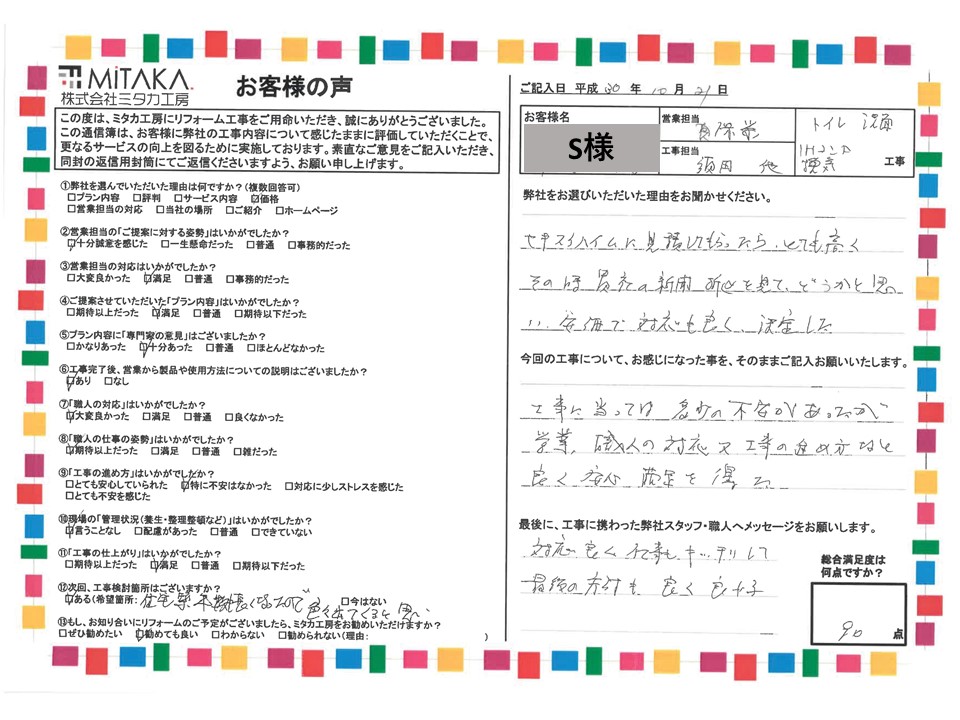 MiTAKA
株式会社ミタカ工房
お客様の声
この度は、ミタカ工房にリフォーム工事をご用命いただき、誠にありがとうございました。
この通信簿は、お客様に弊社の工事内容について感じたままに評価していただくことで、
更なるサービスの向上を図るために実施しております。素直なご意見をご記入いただき、
同封の返信用封筒にてご返信くださいますよう、お願い申し上げます。
①弊社を選んでいただいた理由は何ですか？(複数回答可)
□プラン内容 □評判 □サービス内容 ☑価格
□営業担当の対応 □当社の場所 □ご紹介 □ホームページ
②営業担当の「ご提案に対する姿勢」はいかがでしたか？
☑十分誠意を感じた □一生懸命だった □普通 □事務的だった
③営業担当の対応はいかがでしたか？
□大変良かった ☑満足 □普通 □事務的だった
④ご提案させていただいた「プラン内容」はいかがでしたか？
□期待以上だった ☑満足 □普通 □期待以下だった
⑤プラン内容に「専門家の意見」はございましたか？
□かなりあった ☑十分あった □普通 □ほとんどなかった
⑥工事完了後、営業から製品や使用方法についての説明はございましたか？
☑あり □なし
⑦「職人の対応」はいかがでしたか？
☑大変良かった □満足 □普通 □良くなかった
⑧「職人の仕事の姿勢」はいかがでしたか？
☑期待以上だった □満足 □普通 □雑だった
⑨「工事の進め方」はいかがでしたか？
□とても安心していられた ☑特に不安はなかった □対応に少しストレスを感じた
□とても不安を感じた
⑩現場の「管理状況(養生・整理整頓など)」はいかがでしたか？
☑言うことなし □配慮があった □普通 □できていない
⑪「工事の仕上がり」はいかがでしたか？
☑期待以上だった □満足 □普通 □期待以下だった
⑫次回、工事検討箇所はございますか？
☑ある(希望箇所: 住宅築年数長くなるので色々出てくると思い ) □今はない
⑬もし、お知り合いにリフォームのご予定がございましたら、ミタカ工房をお勧めいただけますか？
□ぜひ勧めたい ☑勧めても良い □わからない □勧められない(理由: )
ご記入日 平成 30 年 10 月 21 日
お客様名
S様
営業担当
工事担当 須田 他
トイレ 洗面
IHコンロ
換気 工事
弊社をお選びいただいた理由をお聞かせください。
セキスイハイムに見積してもらったら、とても高く
その時 貴社の新聞 折込を見て、どうかと思
い、安価で対応も良く、決定した
今回の工事について、お感じになった事を、そのままご記入お願いいたします。
工事に当っては多少の不安があったが
営業、職人の対応又工事の進め方など
良く安心満足を得た
最後に、工事に携わった弊社スタッフ・職人へメッセージをお願いします。
対応良く仕事もキッチリして
最後の片付も良く良かった
総合満足度は
何点ですか？
90 点